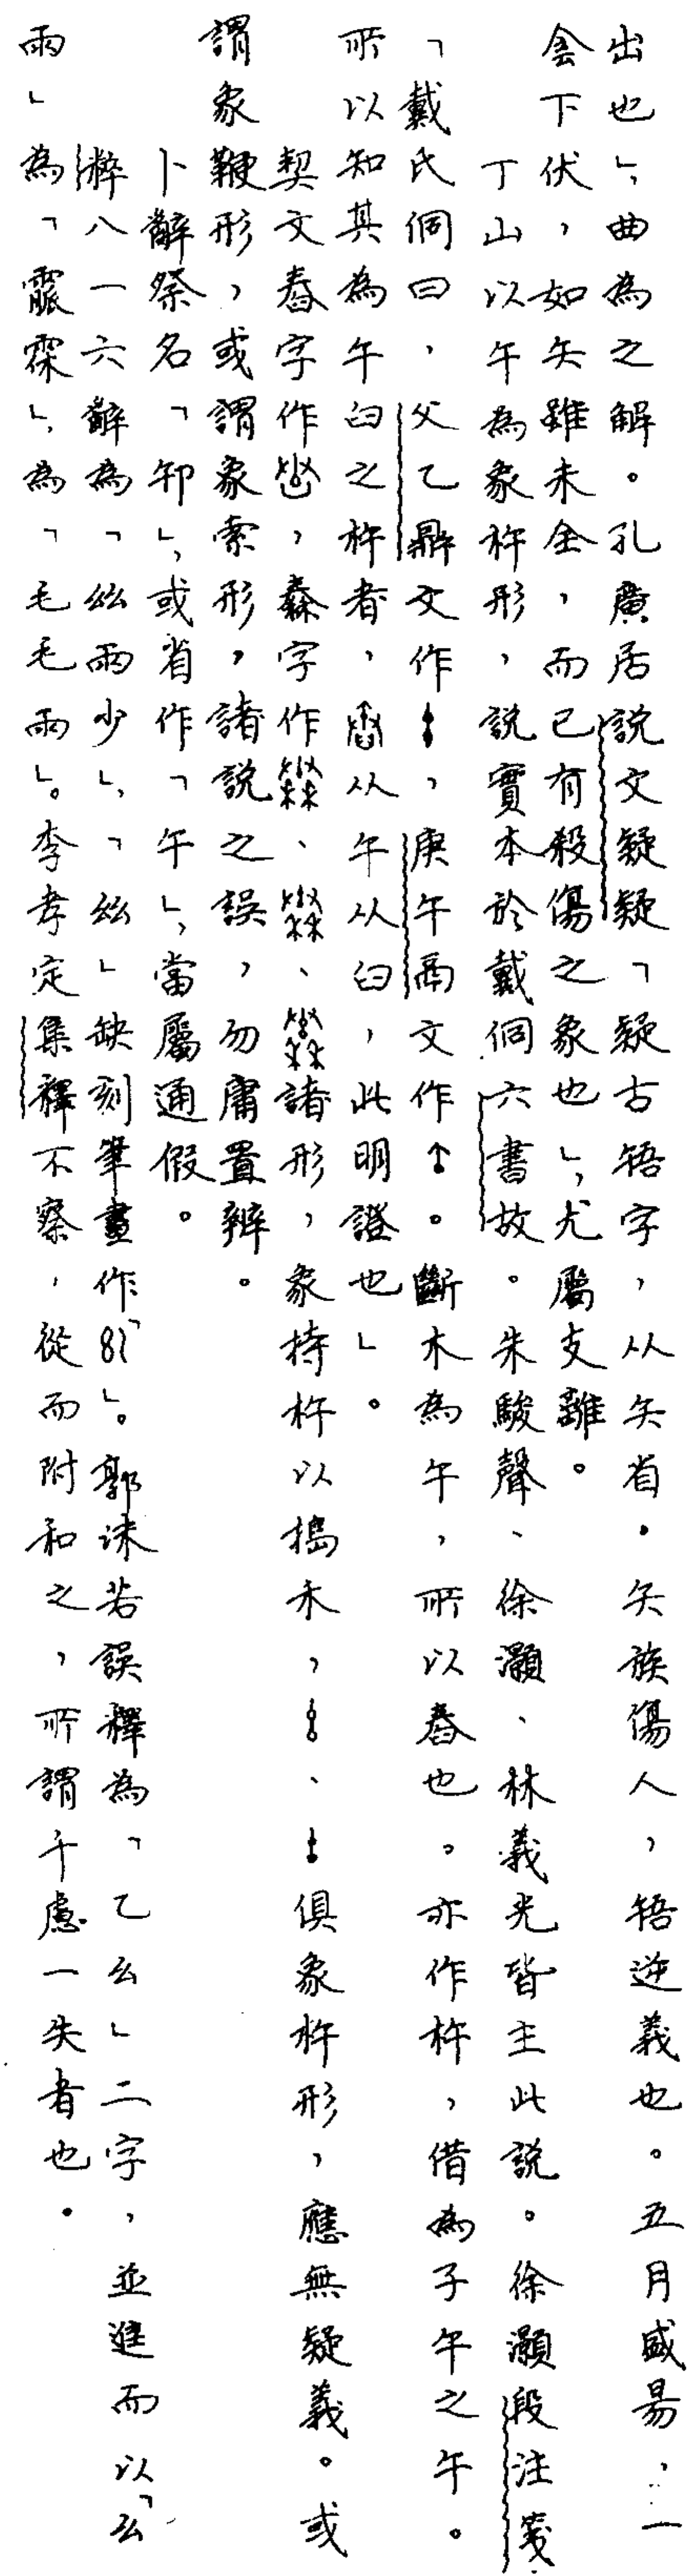 出也」，曲為之解。孔廣居說文疑疑「疑古啎字，从矢省。矢族傷人，啎逆義也。五月盛昜，一
侌下伏，如矢雖未全，而已有殺傷之象也」，尤屬支離。
丁山以午為象杵形，說實本於戴侗六書故。朱駿聲、徐灝、林義光皆主此說。徐灝段注箋
「戴氏侗曰，父乙鼎文作，庚午鬲文作。斷木為午，所以舂也。亦作杵，借為子午之午。
所以知其為午臼之杵者，从午从臼，此明證也」。
契文舂字作，字作、、諸形，象持杵以搗禾，、俱象杵形，應無疑義。或
謂象鞭形，或謂象索形，諸說之誤，勿庸置辨。
卜辭祭名「卸」，或省作「午」，當屬通假。
粹八一六辭為「丝雨少」，「丝」缺刻筆畫作「」。郭沫若誤釋為「乙幺」二字，並進而以「幺
雨」為「霢霂」，為「毛毛雨」。李孝定集釋不察，從而附和之，所謂千慮一失者也。